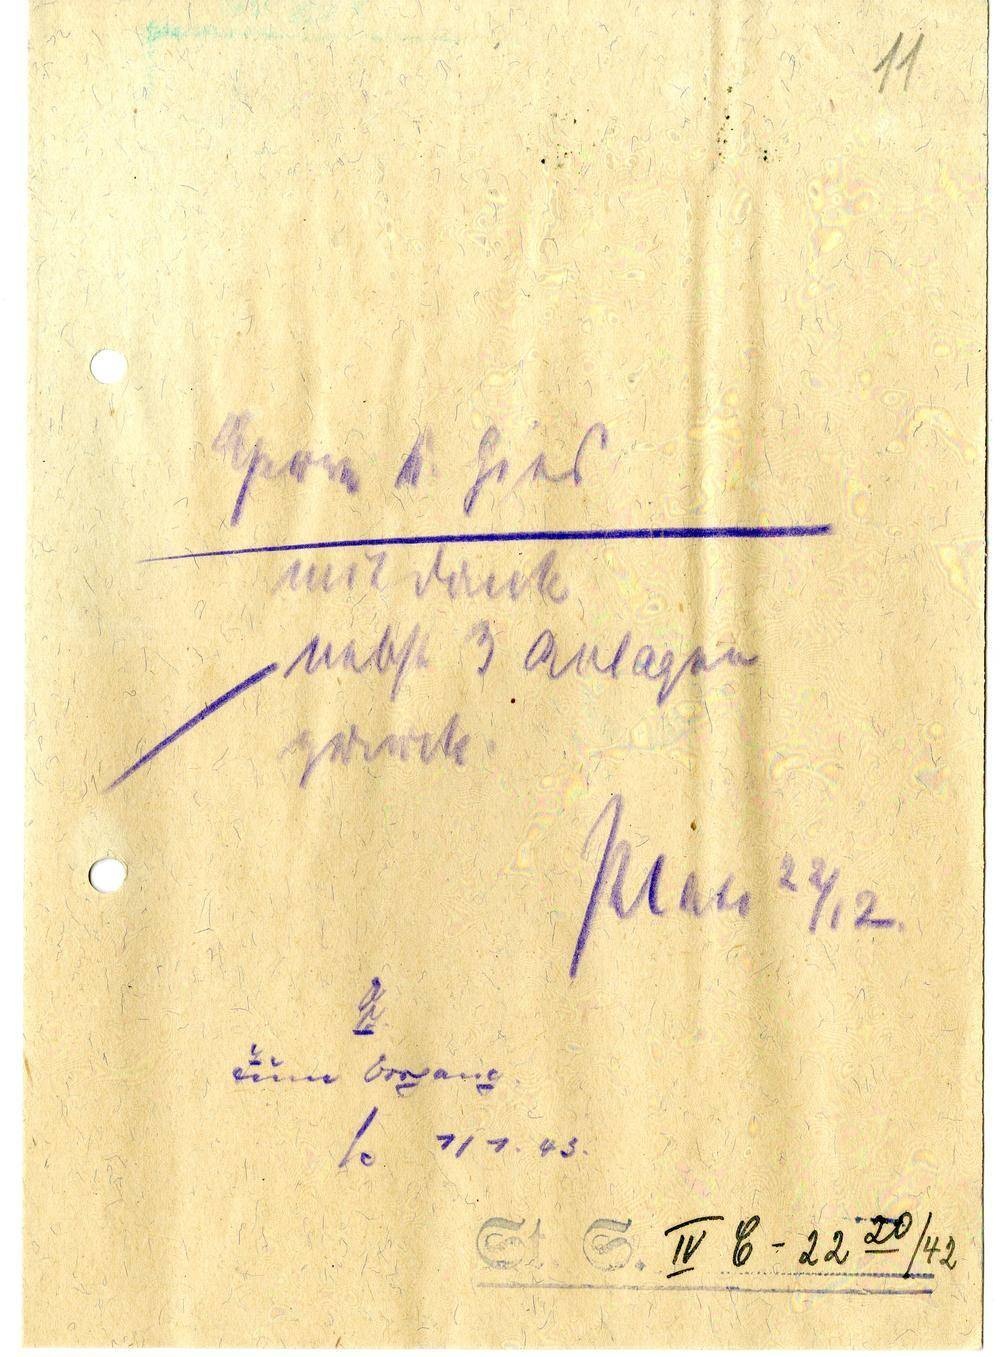 11
Herrn Dr. Gies
mit Dank
nebst 3 Anlagen
zurück.
22/12.
Zum Vorgang.
7/1. 43.
St. S. IV C - 22 20/42